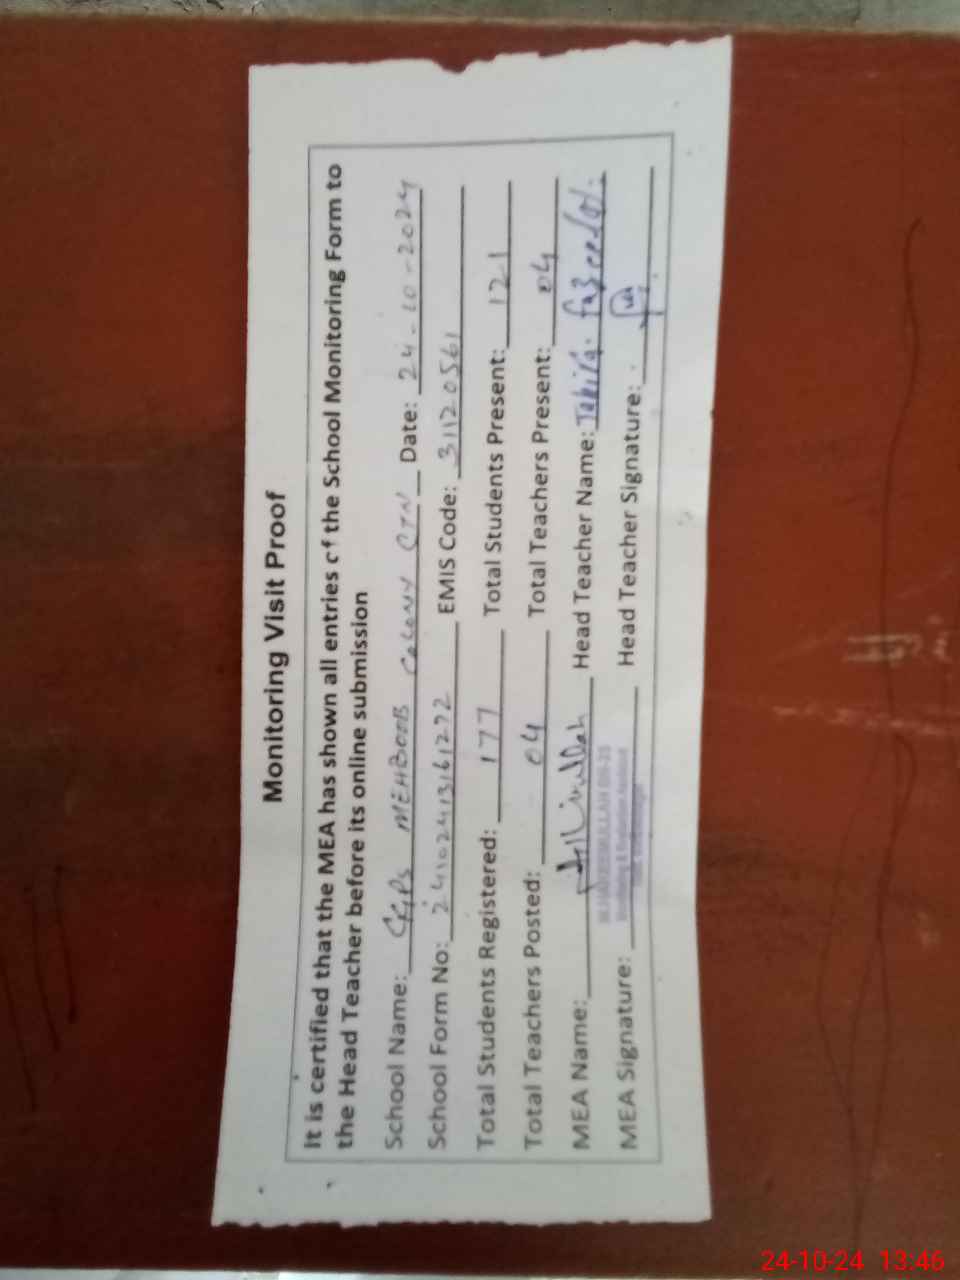 Monitoring Visit Proof
It is certified that the MEA has shown all entries of the School Monitoring Form to
the Head Teacher before its online submission
School Name: GGPS MEHBOOB COLONY CTN Date: 24-10-2024
School Form No: 24102413161272 EMIS Code: 31120561
Total Students Registered: 177 Total Students Present: 121
Total Teachers Posted: 04 Total Teachers Present: 04
MEA Name: Head Teacher Name:
MEA Signature: Head Teacher Signature:
24-10-24 13:46